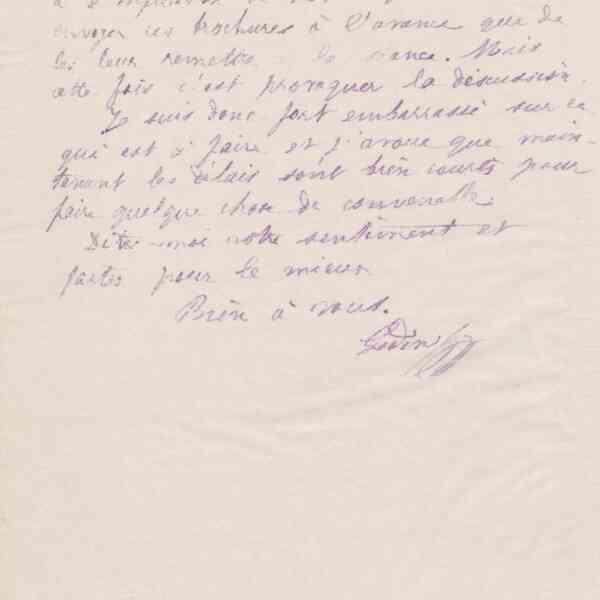 envoyer ces brochures à l'avance que de
les leur remettre à la séance. Mais
cette fois c'est provoquer la discussion.
Je suis donc fort embarrassé sur ce
qui est à faire et j'avoue que main-
tenant les délais sont bien courts pour
faire quelque chose de convenable.
Dites-moi votre sentiment et
faites pour le mieux
Bien à vous.
Godin